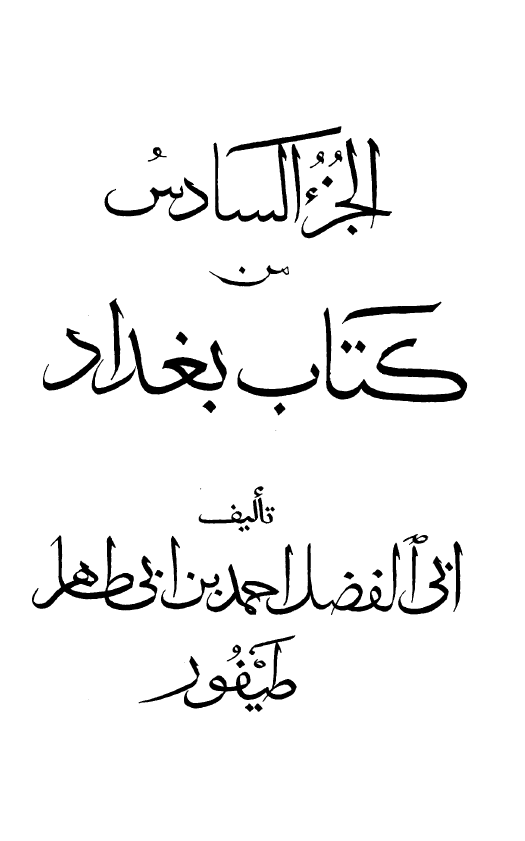 الجُزُءُ السادسُ
من
كتاب بغداد
تأليف
ابى ٱلفضل احمد بن ابى طاهر
طَيْفُور